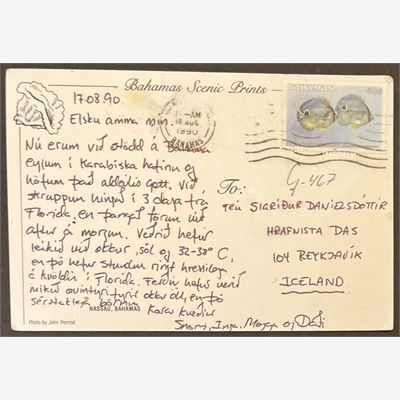 Bahamas Scenic Prints
17.08.90.
Elsku amma mín.
Nú erum við stödd á Bahama
eyjum í Karabiska hafinu og
höfum það aldeilis gott. Við
skruppum hingað í 3 daga frá
Florida, en þangað förum við
aftur á morgun. Veðrið hefur
leikið við okkur, sól og 32-38° C,
en þó hefur stundum rignt hressilega
á kvöldin í Florida. Ferðin hefur verið
mikið ævintýri fyrir okkur öll, en þó
sérstaklega börnin.
Kærar kveðjur
Snorri, Inga, og
NASSAU, BAHAMAS
Photo by John Penrod
AM
18 AUG
1990
BAHAMAS
BAHAMAS
40c
G-467
To:
Frú SIGRÍÐUR DANÍELSDÓTTIR
HRAFNISTA DAS
104 REYKJAVÍK
ICELAND